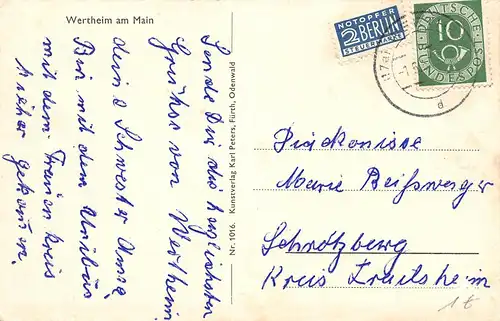 Wertheim am Main
Sende Dir die herzlichsten
Grüße von Wertheim
deine Schwester Anna,
Bin mit dem Unibus
mit dem Frauenkreis
hieher gekommen.
Nr. 1016. Kunstverlag Karl Peters, Fürth, Odenwald
NOTOPFER
2 BERLIN
STEUERMARKE
DEUTSCHE
10
BUNDESPOST
d
Diakonisse
Marie Beißwenger
Schrozberg
Kreis Crailsheim
1€